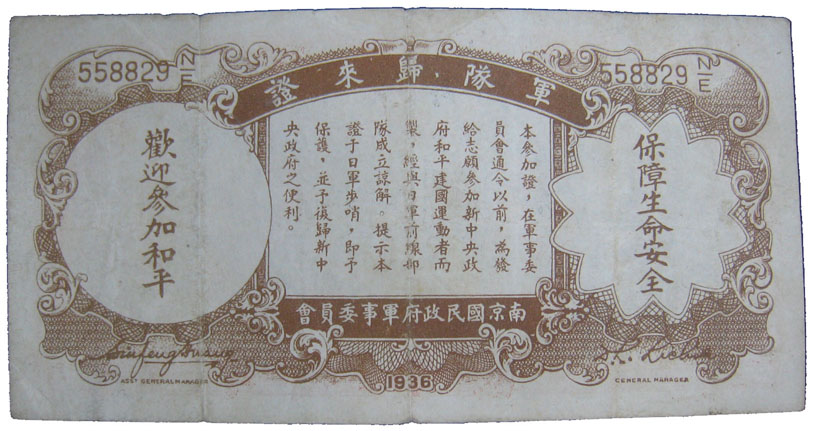 558829 N/E
558829 N/E
軍隊歸來證
保障生命安全
本參加證，在軍事委
員會通令以前，為發
給志願參加新中央政
府和平建國運動者而
製，經與日軍前線部
隊成立諒解。提示本
證于日軍步哨，即予
保護，並予後歸新中
央政府之便利。
歡迎參加和平
南京國民政府軍事委員會
ASST GENERAL MANAGER
1936
GENERAL MANAGER